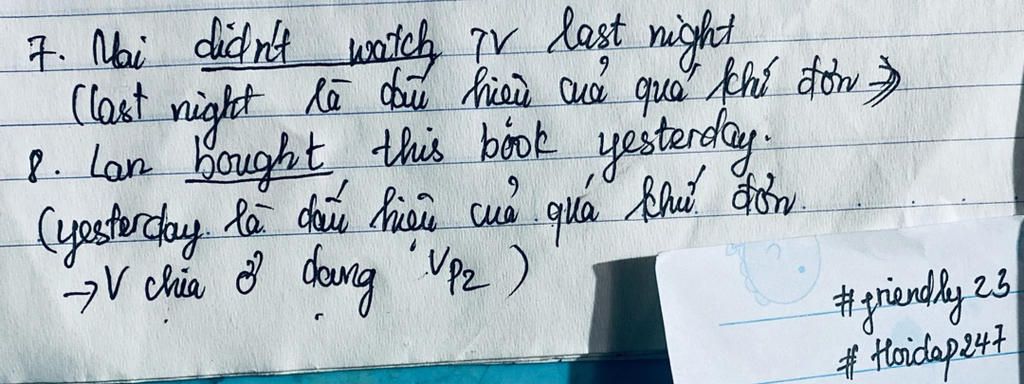 7. Mai didn't watch TV last night
(last night là dấu hiệu của quá khứ đơn →
8. Lan bought this book yesterday.
(yesterday là dấu hiệu của quá khứ đơn
→ V chia ở dạng Vp2)
#friendly23
#Hoidap247